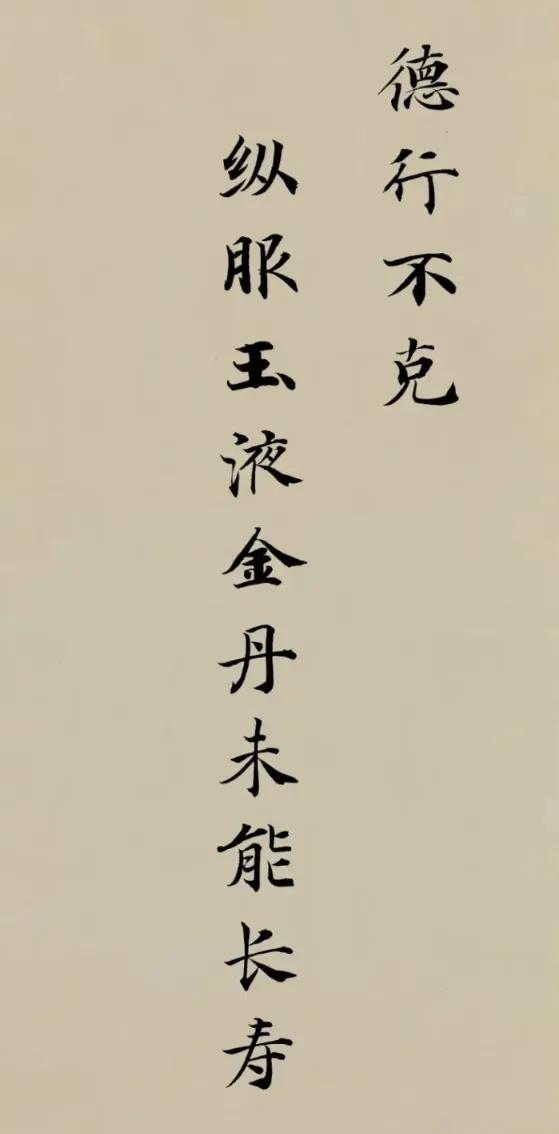 德行不克
纵服玉液金丹未能长寿